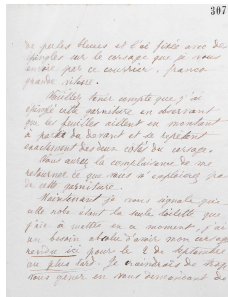 307
de perles bleues et l'ai fixée avec des
épingles sur le corsage que je vous
envoie par ce courrier, franco
grande vitesse.
Veuillez tenir compte que j'ai
épinglé cette garniture en observant
que les feuilles aillent en montant
à partir du devant et se répètent
exactement des deux côtés du corsage.
Vous aurez la complaisance de me
retourner ce que vous n'emploierez pas
de cette garniture.
Maintenant je vous signale que
cette robe étant la seule toilette que
j'aie à mettre en ce moment, j'ai
un besoin absolu d'avoir mon corsage
rendu ici pour le 2 de septembre
au plus tard. Je craindrais de
vous gêner en vous demandant de